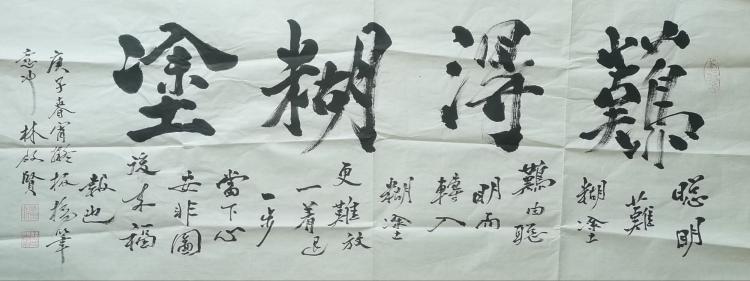 難得糊塗
聰明
難
糊塗
難由聰
明而
轉入
糊塗
更難放
一着退
一步
當下心
安非圖
後來福
報也
庚子春宵擬板橋筆
意 林 賢